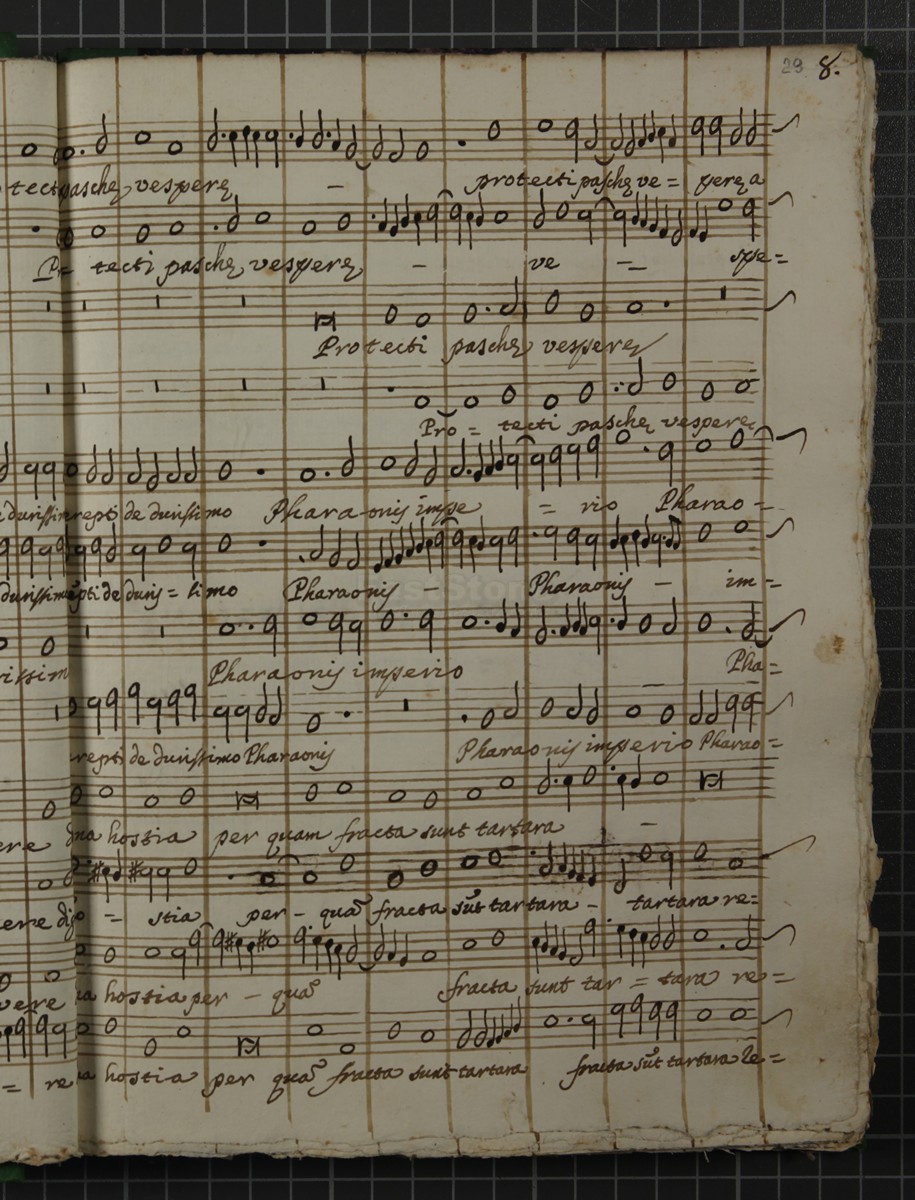 29 8.
tecti paschę vesperę - protecti paschę ve = sperę a
Pr= tecti paschę vesperę - ve - spe=
Protecti paschę vesperę
Pro = tecti paschę vesperę
repti de durissimo Pharaonis impe = rio Pharao =
durissim epti de duris = simo Pharaonis - Pharaonis - im =
rissim Pharaonis imperio Pha=
repti de durissimo Pharaonis Pharaonis imperio Pharao =
ere na hostia per quam fracta sunt tartara -
vere di = stia per - quā fracta sūt tartara - tartara re=
vere a hostia per - quā fracta sunt tar = tara re =
= re a hostia per quā fracta sunt tartara fracta sūt tartara Re =